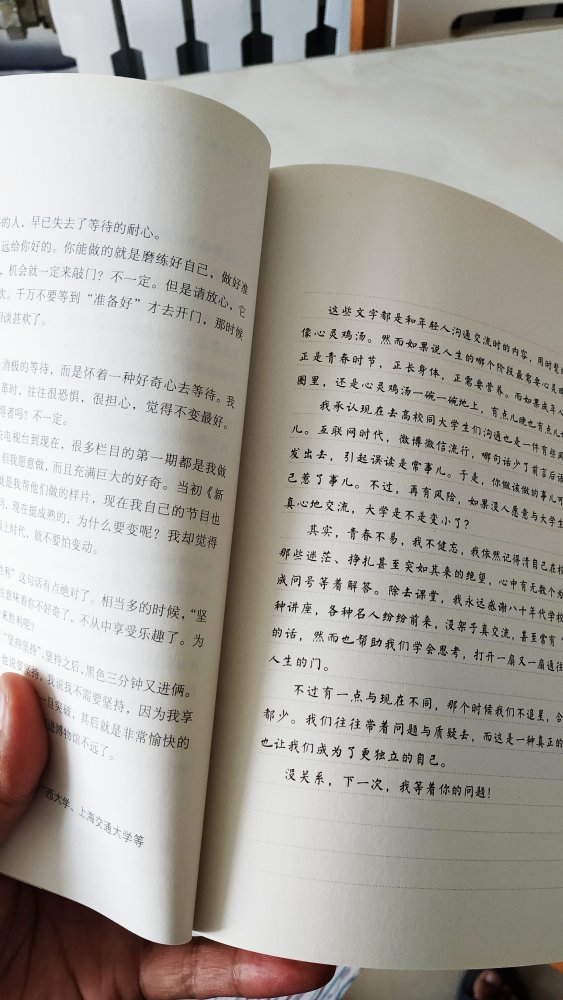 的人，早已失去了等待的耐心。
远给你好的。你能做的就是磨练好自己，做好准
，机会就一定来敲门？不一定。但是请放心，它
次。千万不要等到“准备好”才去开门，那时候
相谈甚欢了。
消极的等待，而是怀着一种好奇心去等待。我
革时，往往很恐惧，很担心，觉得不变最好。
得老吗？不一定。
电视台到现在，很多栏目的第一期都是我做
但我愿意做，而且充满巨大的好奇。当初《新
就是我帮他们做的样片，现在我自己的节目也
，现在挺成熟的，为什么要变呢？我却觉得
上时代，就不要怕变动。
”这句话有点绝对了。相当多的时候，“坚
意味着你不好奇了，不从中享受乐趣了。为
来胜利呢？
“坚持坚持”，坚持之后，黑色三分钟又进俩。
说要坚持，我说我不需要坚持，因为我享
旦突破，其后就是非常愉快的
进博物馆不远了。
广西大学、上海交通大学等
这些文字都是和年轻人沟通交流时的内容，用时髦的
像心灵鸡汤。然而如果说人生的哪个阶段最需要心灵鸡
正是青春时节，正长身体，正需要营养。而如果成年人
圈里，还是心灵鸡汤一碗一碗地上，有点儿晚也有点儿
我承认现在去高校同大学生们沟通也是一件有些风
儿。互联网时代，微博微信流行，哪句话少了前言后语
发出去，引起误读是常事儿。于是，你做该做的事儿可
己惹了事儿。不过，再有风险，如果没人愿意与大学生
真心地交流，大学是不是变小了？
其实，青春不易，我不健忘，我依然记得清自己在校
那些迷茫、挣扎甚至突如其来的绝望，心中有无数个为
成问号等着解答。除去课堂，我永远感谢八十年代学校
种讲座，各种名人纷纷前来，没架子真交流，甚至常有“
的话，然而也帮助我们学会思考，打开一扇又一扇通往
人生的门。
不过有一点与现在不同，那个时候我们不追星，合
都少。我们往往带着问题与质疑去，而这是一种真正的
也让我们成为了更独立的自己。
没关系，下一次，我等着你的问题！